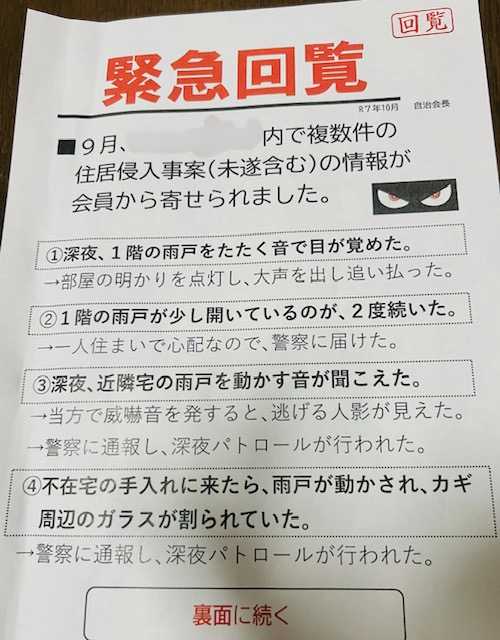 回覧
緊急回覧
R７年10月 自治会長
■９月、 内で複数件の
住居侵入事案(未遂含む)の情報が
会員から寄せられました。
①深夜、１階の雨戸をたたく音で目が覚めた。
→部屋の明かりを点灯し、大声を出し追い払った。
②１階の雨戸が少し開いているのが、２度続いた。
→一人住まいで心配なので、警察に届けた。
③深夜、近隣宅の雨戸を動かす音が聞こえた。
→当方で威嚇音を発すると、逃げる人影が見えた。
→警察に通報し、深夜パトロールが行われた。
④不在宅の手入れに来たら、雨戸が動かされ、カギ
周辺のガラスが割られていた。
→警察に通報し、深夜パトロールが行われた。
裏面に続く